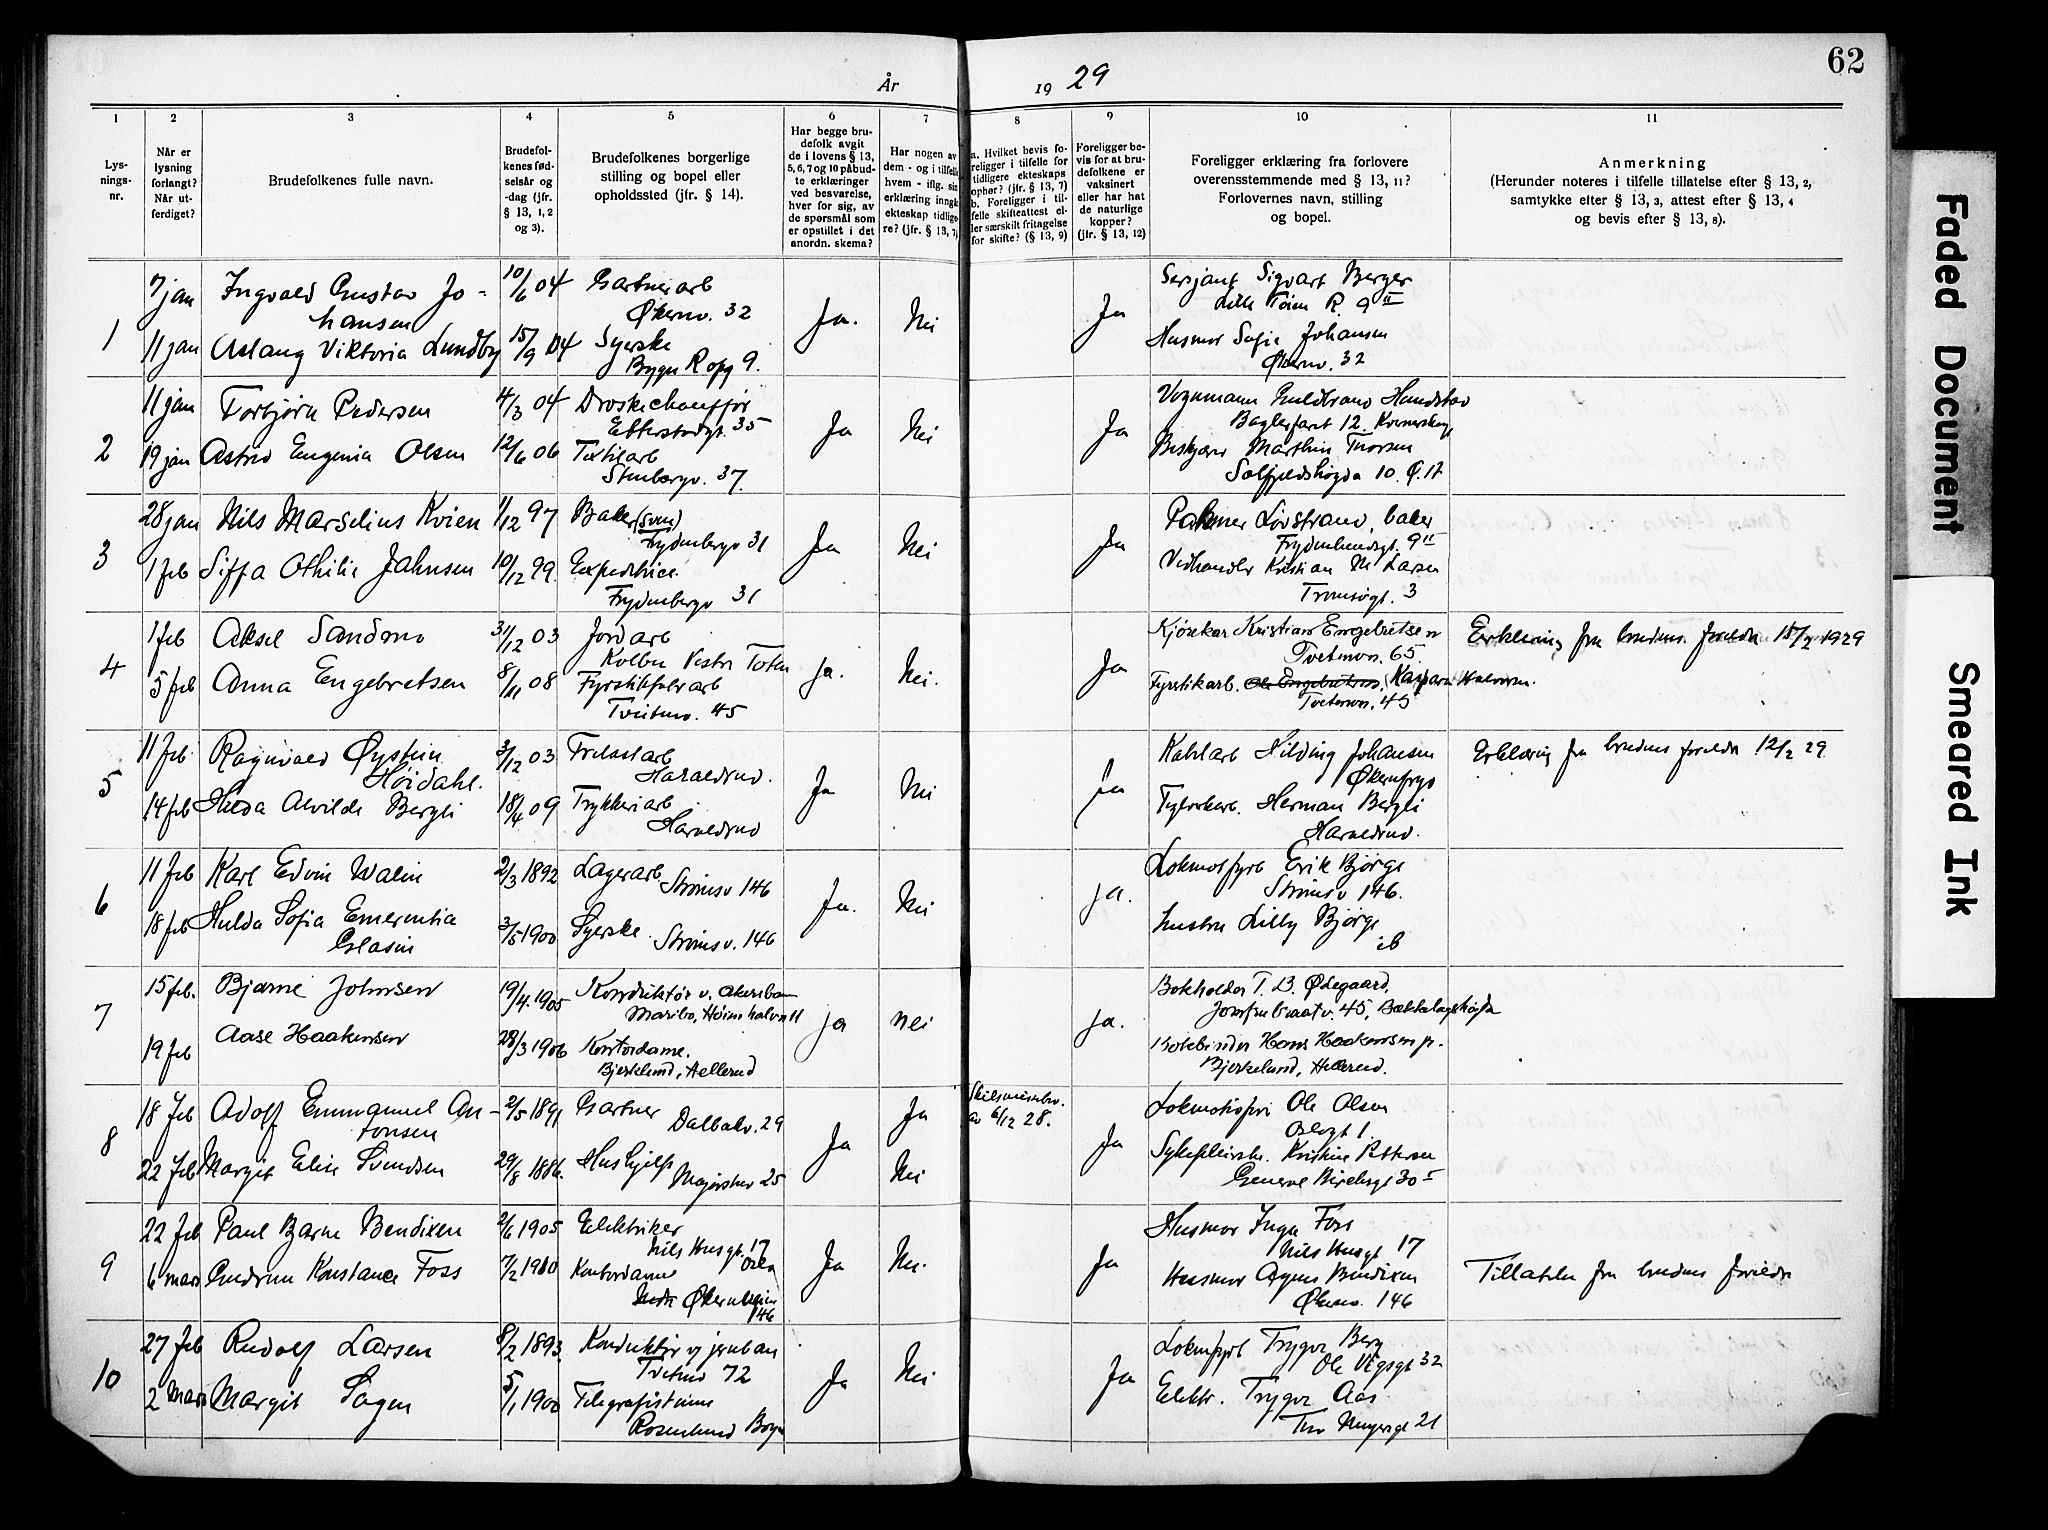 62
År 1929
1
2
3
4
5
6
7
8
9
10
11
Lys-
nings-
nr.
Når er
lysning
forlangt?
Når ut-
ferdiget?
Brudefolkenes fulle navn.
Brudefol-
kenes fød-
selsår og
-dag (jfr.
§ 13, 1, 2
og 3).
Brudefolkenes borgerlige
stilling og bopel eller
opholdssted (jfr. § 14).
Har begge bru-
defolk avgit
de i lovens § 13,
5, 6, 7 og 10 påbud-
te erklæringer
ved besvarelse,
hver for sig, av
de spørsmål som
er opstillet i det
anordn. skema?
Har nogen av
dem - og i tilfelle
hvem - iflg. sin
erklæring inngå
ekteskap tidlige-
re? (jfr. § 13, 7)
a. Hvilket bevis fo-
religger i tilfelle for
tidligere ekteskaps
ophør? (jfr. § 13, 7)
b. Foreligger i til-
felle skifteattest el-
ler særskilt fritagelse
for skifte? (§ 13, 9)
Foreligger be-
vis for at bru-
defolkene er
vaksinert
eller har hat
de naturlige
kopper?
(jfr. § 13, 12)
Foreligger erklæring fra forlovere
overensstemmende med § 13, 11?
Forlovernes navn, stilling
og bopel.
Anmerkning
(Herunder noteres i tilfelle tillatelse efter § 13, 2,
samtykke efter § 13, 3, attest efter § 13, 4
og bevis efter § 13, 8).
1
7 jan
Ingvald Gustav Jo-
hansen
10/6 04
Gartneriarb
Økernv. 32
11 jan
Aslaug Viktoria Lundby
15/9 04
Syerske
Bygn R opg 9.
Ja.
Nei
Ja
Sersjant Sigvart Berger
Lille Tøien R. 9 II
Husmor Sofie Johansen
Økernv. 32
2
11 jan
Torbjørn Pedersen
4/3 04
Droskechauffør
Etterstadgt. 35
19 jan
Astrid Eugenia Olsen
12/6 06
Textilarb
Stenbergv. 37.
Ja
Nei
Ja
Vognmann Guldbrand Hundstad
Baglerfaret 12.
Marthin Thorsen
Solfjeldshøgda 10. Ø. A.
3
28 jan
Nils Marselius Kvien
1/12 97
Baker (svend)
Frydenbergv 31
1 feb
Siffa Othilie Jahnsen
10/12 99.
Expeditrice.
Frydenbergv 31
Ja
Nei
Ja
Palmer Løvstrand, baker
Frydenlundsgt. 9 II
Vedhandler Kristian M Larsen
Tromsøgt. 3
4
1 feb
Aksel Sandmo
31/12 03
Jordarb
Kolbu Vestre Toten
5 feb
Anna Engebretsen
8/11 08
Fyrstikfabrarb
Tvetenv. 45
ja.
Nei.
Ja
Kjørekar Kristian Engebretsen
Tvetenvn. 65.
Fyrstikarb. Ole Engebretsen, Kaspara Halvorsen.
Tvetenvn. 45
Erklæring fra brudens foreldre 15/2 1929
5
11 feb
Ragnvald Øystein
Høidahl.
3/12 03
Haraldrud.
14 feb
Hilda Alvilde Bergli
18/4 09
Trykkeriarb
Haraldrud
Ja
Nei
Ja
Kabelarb Hilding Johansen
Teglverkarb. Herman Bergli
Haraldrud.
Erklæring fra brudens foreldre 12/2 29.
6
11 feb
Karl Edvin Walin
2/3 1892
Lagerarb.
Strømsv 146
18 feb
Hulda Sofia Emerentia
Glasin
3/5 1900
Syerske.
Strømsv. 146
Ja.
Nei
ja.
Lokmotfyrb Erik Bjørge
Strømsv 146.
Hustru Lilly Bjørge
ib
7
15 feb.
Bjarne Johnsen
19/4. 1905
Konduktør v. Akersban
Maribo, Høimshalvn 11
19 feb
Aase Haakensen
28/3 1906
Kontordame.
Bjerkelund, Hellerud
ja
nei
ja.
Bokholder T. B. Ødegaard,
45, Bækkelagshøgda
Bokbinder Hans Haakensen jr.
Bjerkelund, Hellerud.
8
18 feb
Adolf Emmanuel An-
tonsen
2/5 1891
Gartner
Dalbakv. 29
22 feb
Margit Elise Svendsen
29/8 1886.
Hushjelp
Majorstuv 25
Ja
Ja
Nei
Skilsmissebev.
av 6/12 28.
Ja
Lokmotivføri Ole Olsen
Oslogt 1.
Sykepleierske. Kristine Pettersen
General Birchsgt 30 I
9
22 feb
Paul Bjarne Bendixen
2/6 1905
Elektriker
Nils Husgt. 17
Oslo
6 mars
Gudrun Konstance Foss
7/2 1910
Kontordame
146
Ja
Nei.
Ja
Husmor Inga Foss
Nils Husgt 17
Husmor Agnes Bendixen
Økernv. 146
Tillatelse fra brudens foreldre
10
27 feb
Rudolf Larsen
8/2 1893
Konduktør v jernban
Tvetenv 72
2 Mars
Margit Sagen
5/1 1900
Telegrafistinne
Rosenlund Bryn
Ja
Nei
Ja
Lokmfyrb Trygve Berg
Ole Vigsgt 32
Elektr. Trygve Aas
Thv Meyersgt 21
Faded Document
Smeared Ink